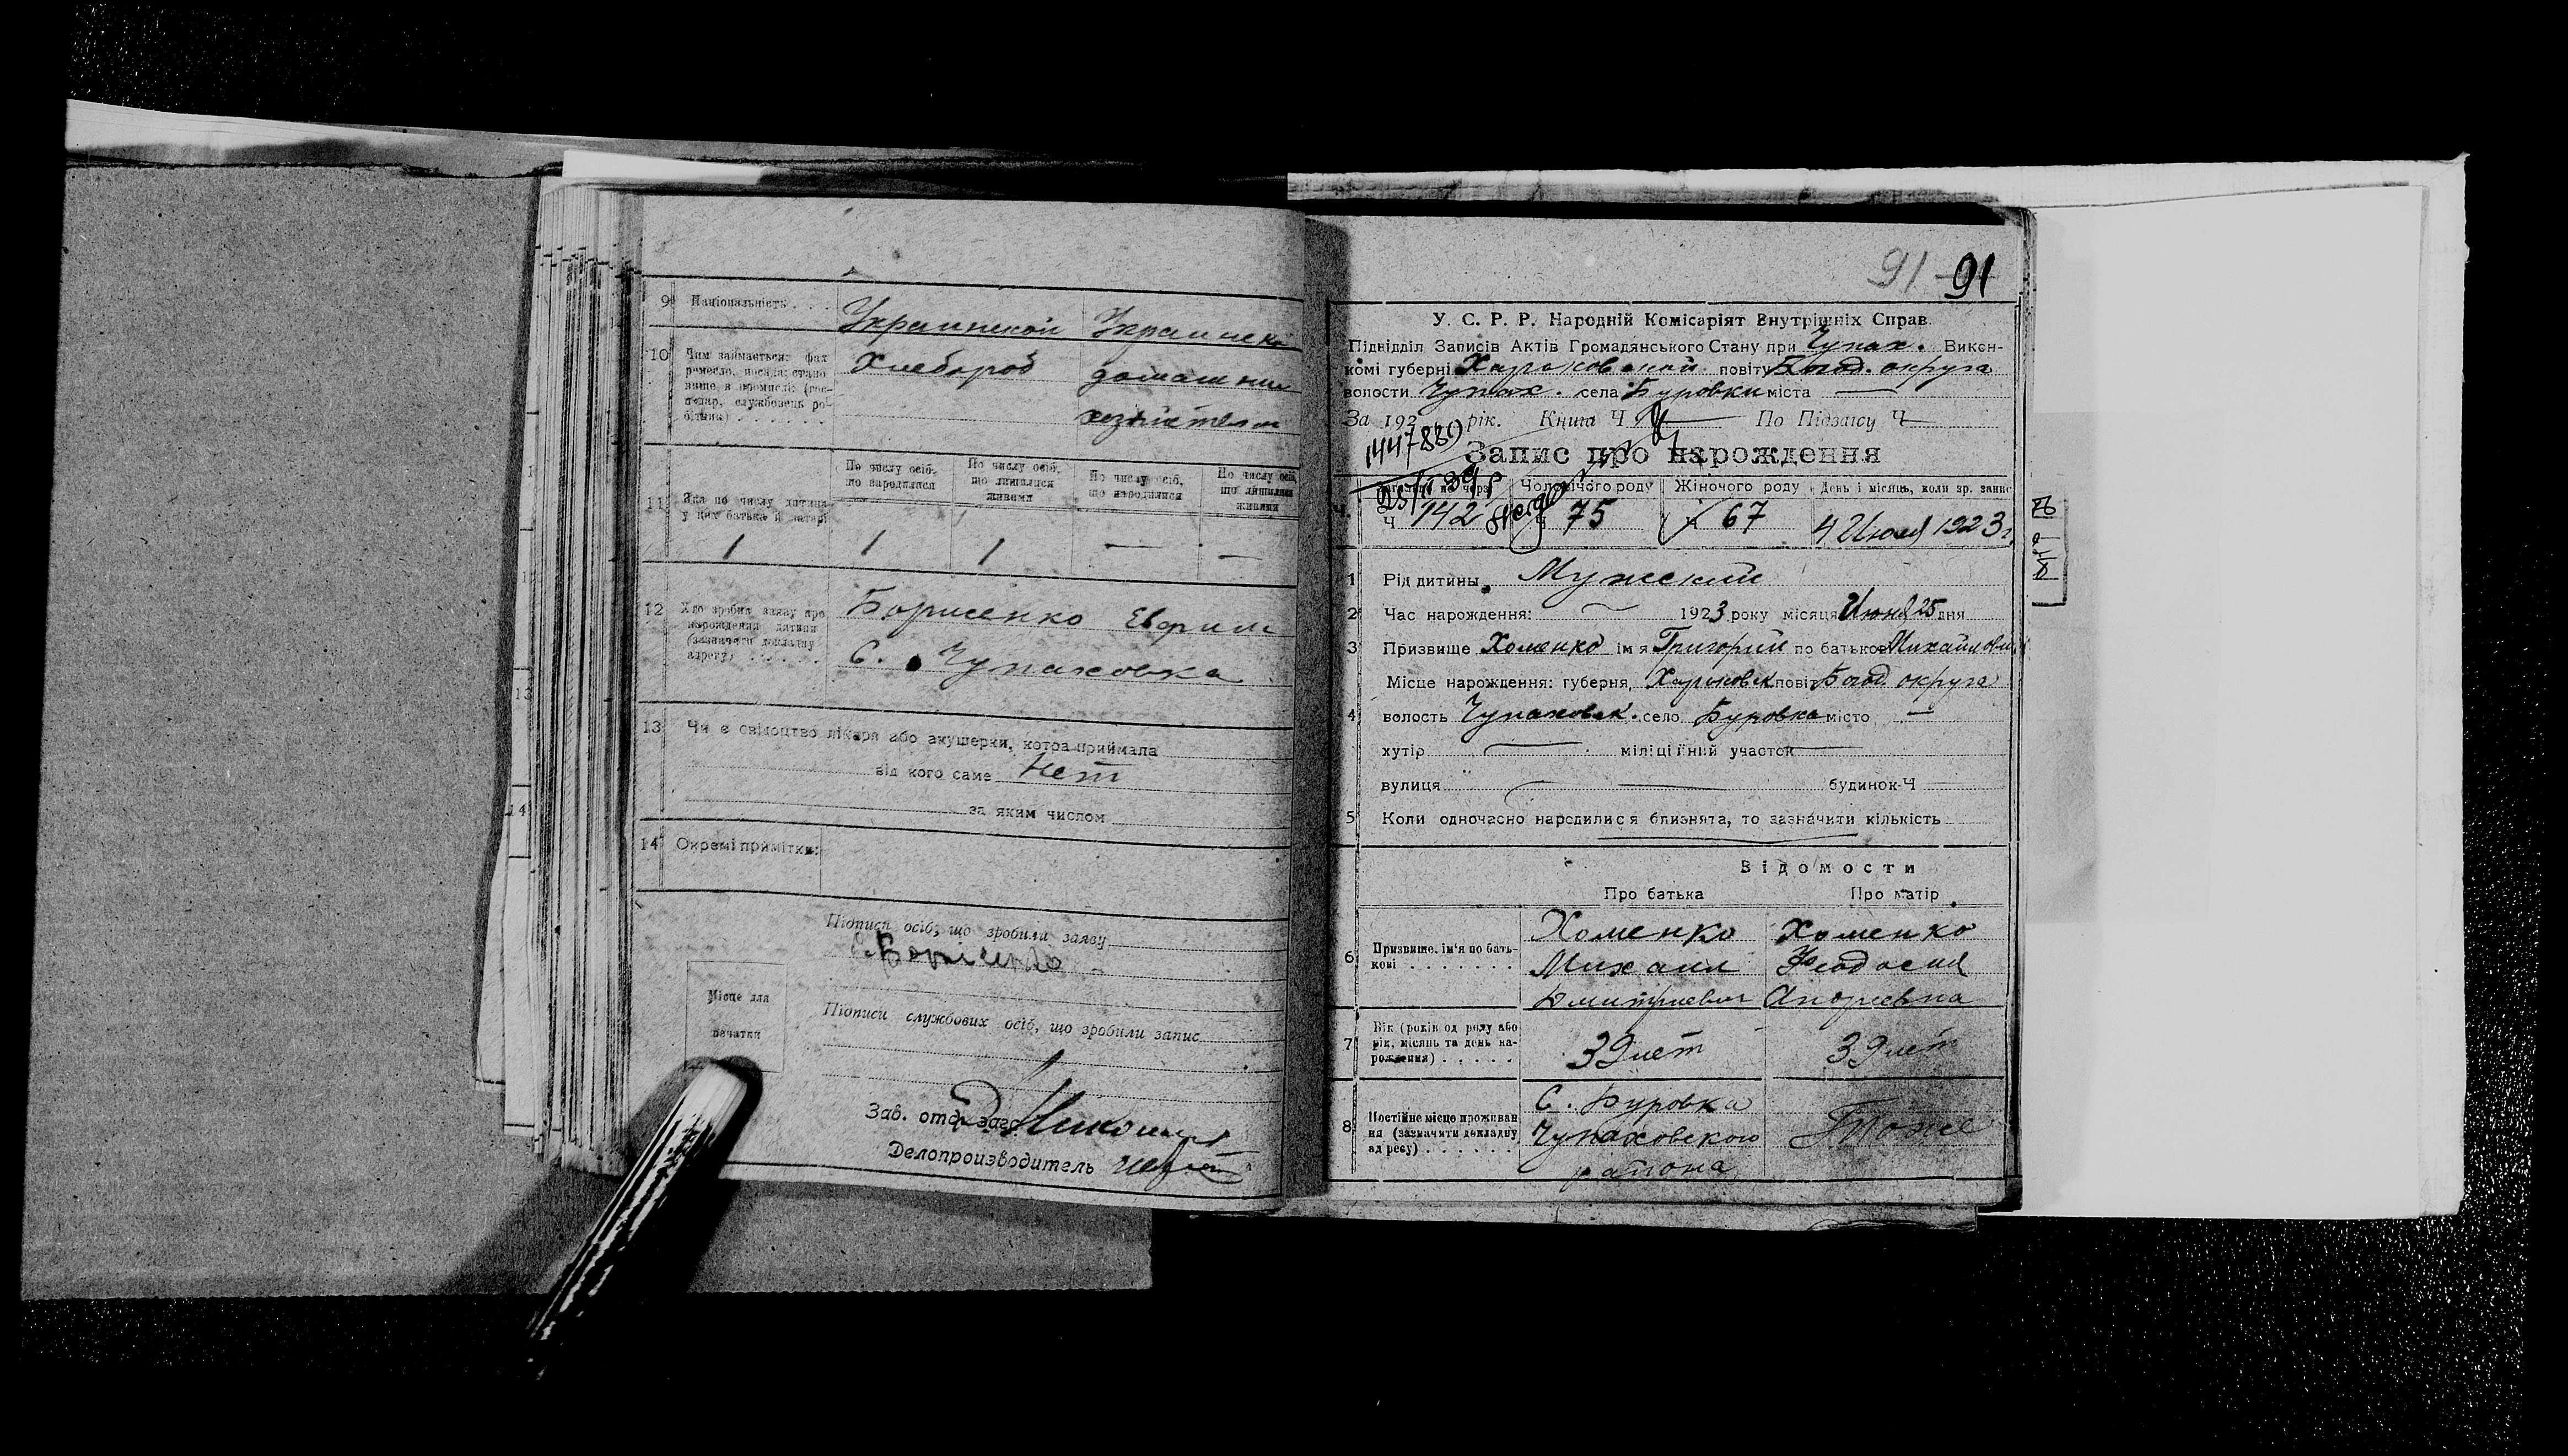 9 Національність . . . Украинской Украинской
10 Чим займається: фах Хлебороб домашним
ремесло, посада; стано-
вище в промислі: (гос-
подар, службовець ро-
бітник) . . . . . .
11 Яка по числу дитина
у цих батька й матері
По числу осіб, що народилися
По числу осіб, що лишилися живими
По числу осіб, що народилися
По числу осіб, що лишилися живими
1 1 1 — —
12 Хто зробив заяву про Борисенко Ефрим
нарождення дитини
(зазначити докладну С. Чупаховка
адресу) . . . . .
13 Чи є свідоцтво лікаря або акушерки, котра приймала
від кого саме Нет
за яким числом
14 Окремі примітки:
Підписи осіб, що зробили заяву
Борисенко
Місце для
печатки
Підписи службових осіб, що зробили запис
Зав. отд. загс
Делопроизводитель
91 91
У. С. Р. Р. Народній Комісаріят Внутрішніх Справ.
Підвідділ Записів Актів Громадянського Стану при Чупах. Викон-
комі губерні Харьковской повіту Богод. округа
волости Чупах. села Буровки міста —
За 192 рік. Книга Ч По Підзаису Ч
1447889
Запис про нарождення
Чоловічого роду Жіночого роду День і місяць, коли зр. запис
Ч 142 75 Ч 67 4 Июля 1923 г.
1 Рід дитины Мужский
2 Час нарождення: — 1923 року місяця Июня 25 дня
3 Призвище Хоменко ім'я Григорий по батькові Михайлович
Місце нарождення: губерня, Харьковск повіт Богод. округа
4 волость Чупаховск. село Буровка місто —
хутір — міліційний участок —
вулиця — будинок Ч —
5 Коли одночасно народилися близнята, то зазначити кількість
Відомости
Про батька Про матір
6 Призвище, ім'я по бать- Хоменко Хоменко
кові . . . . . . . Михаил Феодосия
Дмитриевич Андреевна
7 Вік (років од роду або
рік, місяць та день на- 39 лет 39 лет
рождення) . . . . .
8 Постійне місце проживан- С. Буровка
ня (зазначити докладну Чупаховского Тоже
адресу) . . . . . . района